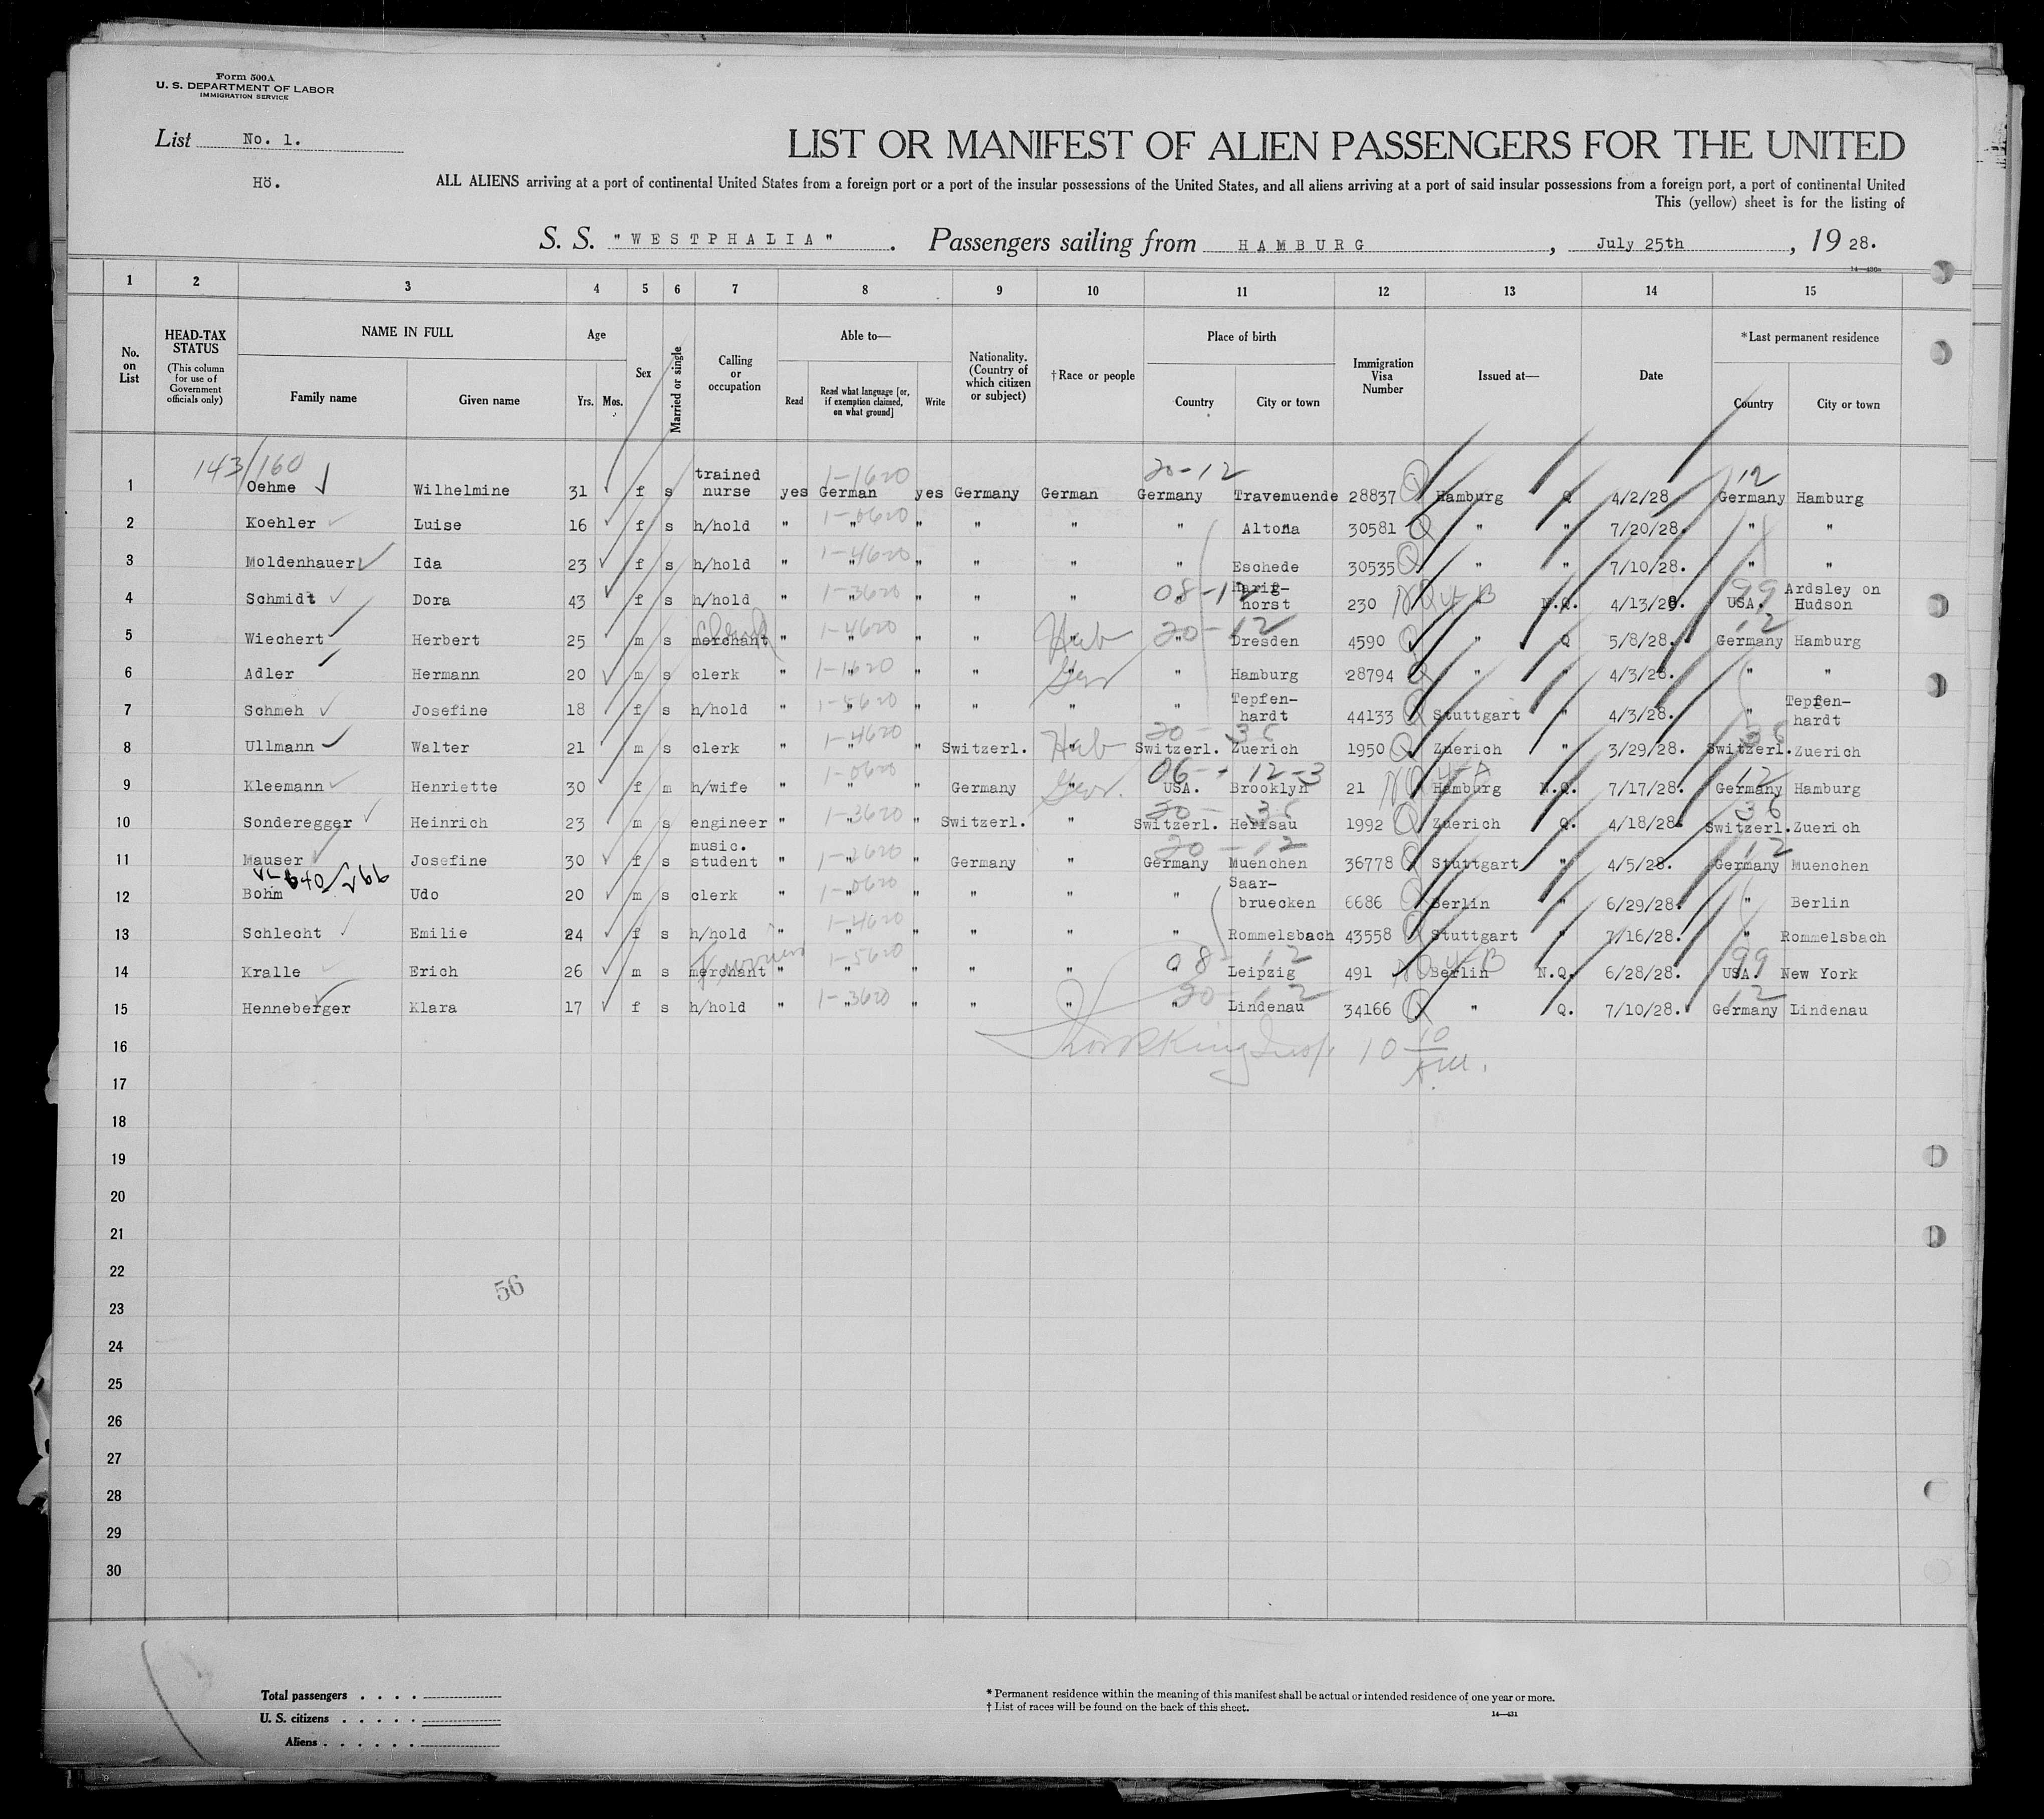 Form 500A
U. S. DEPARTMENT OF LABOR
IMMIGRATION SERVICE
List No. 1.
Hö.
LIST OR MANIFEST OF ALIEN PASSENGERS FOR THE UNITED
ALL ALIENS arriving at a port of continental United States from a foreign port or a port of the insular possessions of the United States, and all aliens arriving at a port of said insular possessions from a foreign port, a port of continental United
This (yellow) sheet is for the listing of
S. S. "WESTPHALIA". Passengers sailing from HAMBURG, July 25th, 19 28.
1 2 3 4 5 6 7 8 9 10 11 12 13 14 15
No. on List
HEAD-TAX STATUS (This column for use of Government officials only)
NAME IN FULL
Family name Given name
Age
Yrs. Mos.
Sex
Married or single
Calling or occupation
Able to—
Read Read what language [or, if exemption claimed, on what ground] Write
Nationality. (Country of which citizen or subject)
†Race or people
Place of birth
Country City or town
Immigration Visa Number
Issued at—
Date
*Last permanent residence
Country City or town
143/160 1-1620 20-12 12
1 Oehme Wilhelmine 31 f s trained nurse yes German yes Germany German Germany Travemuende 28837 Q Hamburg Q 4/2/28 Germany Hamburg
2 Koehler Luise 16 f s h/hold " 1-0620 " " " " " Altona 30581 Q " " 7/20/28. " "
3 Moldenhauer Ida 23 f s h/hold " 1-4620 " " " " " Eschede 30535 Q " " 7/10/28. " "
4 Schmidt Dora 43 f s h/hold " 1-3620 " " " " 08-12 " Harig-horst 230 NQ 4-B " N.Q. 4/13/28. 99 USA. Ardsley on Hudson
5 Wiechert Herbert 25 m s merchant clerk " 1-4620 " " " Heb " 20-12 " Dresden 4590 Q " Q 5/8/28. 12 Germany Hamburg
6 Adler Hermann 20 m s clerk " 1-1620 " " " Ger " " Hamburg 28794 Q " " 4/3/28. " "
7 Schmeh Josefine 18 f s h/hold " 1-5620 " " " " " Tepfen-hardt 44133 Q Stuttgart " 4/3/28. " Tepfen-hardt
8 Ullmann Walter 21 m s clerk " 1-4620 " " Switzerl. Heb " 20-36 Switzerl. Zuerich 1950 Q Zuerich " 3/29/28. 36 Switzerl. Zuerich
9 Kleemann Henriette 30 f m h/wife " 1-0620 " " Germany Ger. " 06- 12-3 USA. Brooklyn 21 NQ 4-A Hamburg N.Q. 7/17/28. 12 Germany Hamburg
10 Sonderegger Heinrich 23 m s engineer " 1-3620 " " Switzerl. " 20-36 Switzerl. Herisau 1992 Q Zuerich Q. 4/18/28. 36 Switzerl. Zuerich
11 Mauser Josefine 30 f s music. student " 1-2620 " " Germany " 20-12 Germany Muenchen 36778 Q Stuttgart " 4/5/28. 12 Germany Muenchen
12 Bohm Udo 20 m s clerk " 1-0620 " " " " " Saar-bruecken 6686 Q Berlin " 6/29/28. " Berlin
13 Schlecht Emilie 24 f s h/hold " 1-4620 " " " " " Rommelsbach 43558 Q Stuttgart " 7/16/28. " Rommelsbach
14 Kralle Erich 26 m s merchant " 1-5620 " " " " 08-12 " Leipzig 491 NQ 4-B Berlin N.Q. 6/28/28. 99 USA. New York
15 Henneberger Klara 17 f s h/hold " 1-3620 " " " " 20-12 " Lindenau 34166 Q " Q. 7/10/28. 12 Germany Lindenau
16 King Insp. 10 10/AM.
17
18
19
20
21
22
56
23
24
25
26
27
28
29
30
Total passengers . . . .
U. S. citizens . . . . .
Aliens . . . . . .
* Permanent residence within the meaning of this manifest shall be actual or intended residence of one year or more.
† List of races will be found on the back of this sheet.
14—431